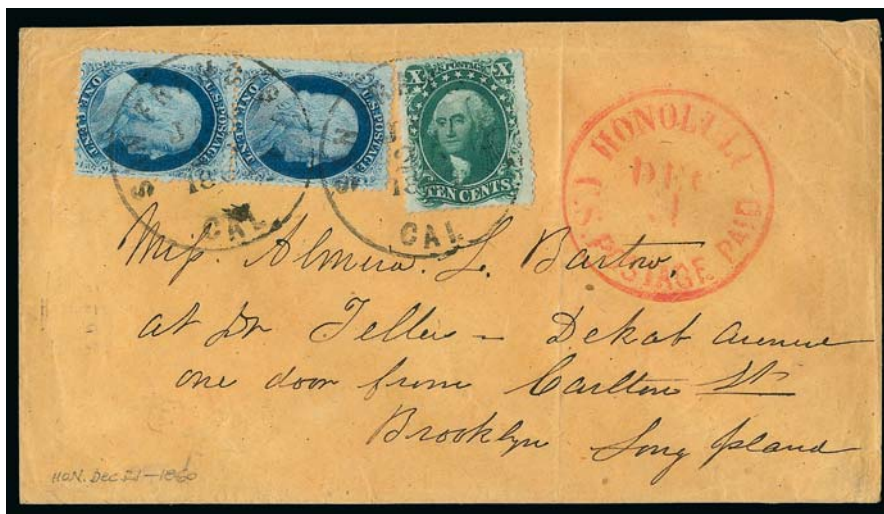 U.S. POSTAGE
ONE CENT
U.S. POSTAGE
ONE CENT
X U.S. POSTAGE X
TEN CENTS
SAN FRANCISCO
CAL
CAL
HONOLULU
DEC
U.S. POSTAGE PAID
Miss Almira. L. Bartow,
at Dr Tellers – Dekab Avenue
one door from Carlton St
Brooklyn Long Island
HON. DEC 21–1860